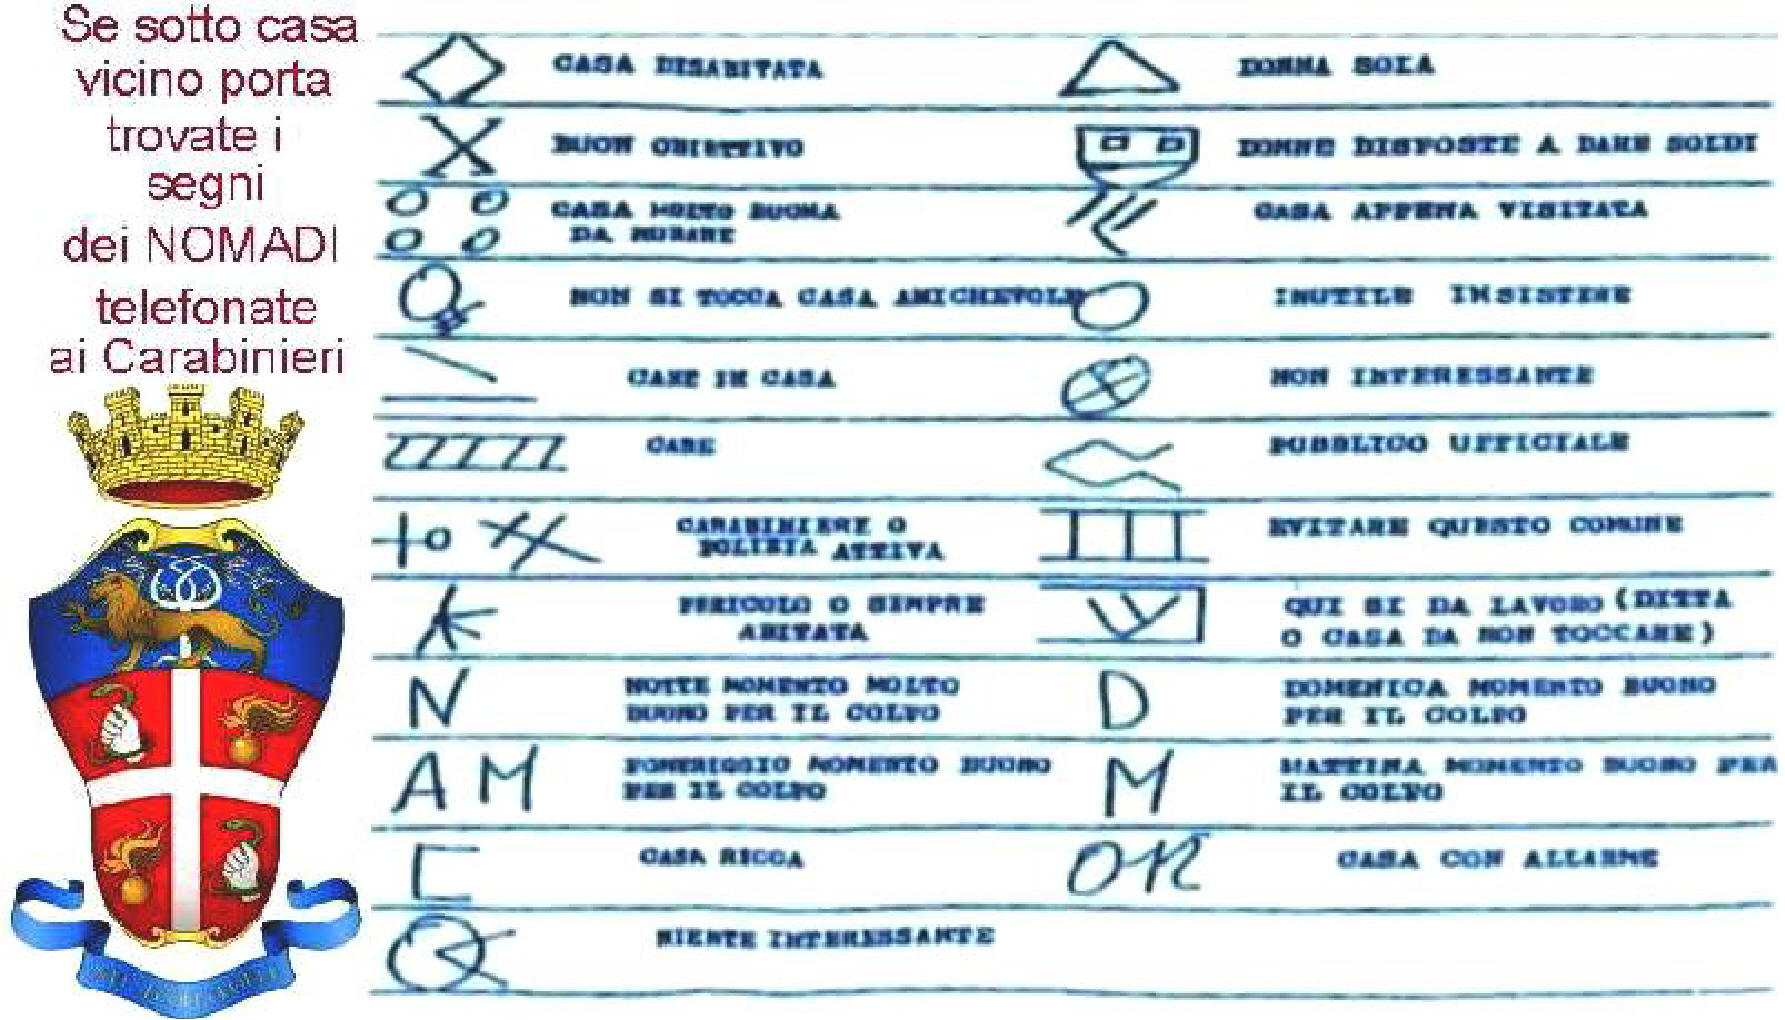 Se sotto casa
vicino porta
trovate i
segni
dei NOMADI
telefonate
ai Carabinieri
CASA DISABITATA
DONNA SOLA
BUON OBIETTIVO
DONNE DISPOSTE A DARE SOLDI
CASA MOLTO BUONA
DA RUBARE
CASA APPENA VISITATA
NON SI TOCCA CASA AMICHEVOLE
INUTILE INSISTERE
CANE IN CASA
NON INTERESSANTE
CANE
PUBBLICO UFFICIALE
CARABINIERE O
POLIZIA ATTIVA
EVITARE QUESTO COMUNE
PERICOLO O SEMPRE
ABITATA
QUI SI DA LAVORO (DITTA
O CASA DA NON TOCCARE)
N
NOTTE MOMENTO MOLTO
BUONO PER IL COLPO
D
DOMENICA MOMENTO BUONO
PER IL COLPO
AM
POMERIGGIO MOMENTO BUONO
PER IL COLPO
M
MATTINA MOMENTO BUONO PER
IL COLPO
CASA RICCA
OR
CASA CON ALLARME
NIENTE INTERESSANTE